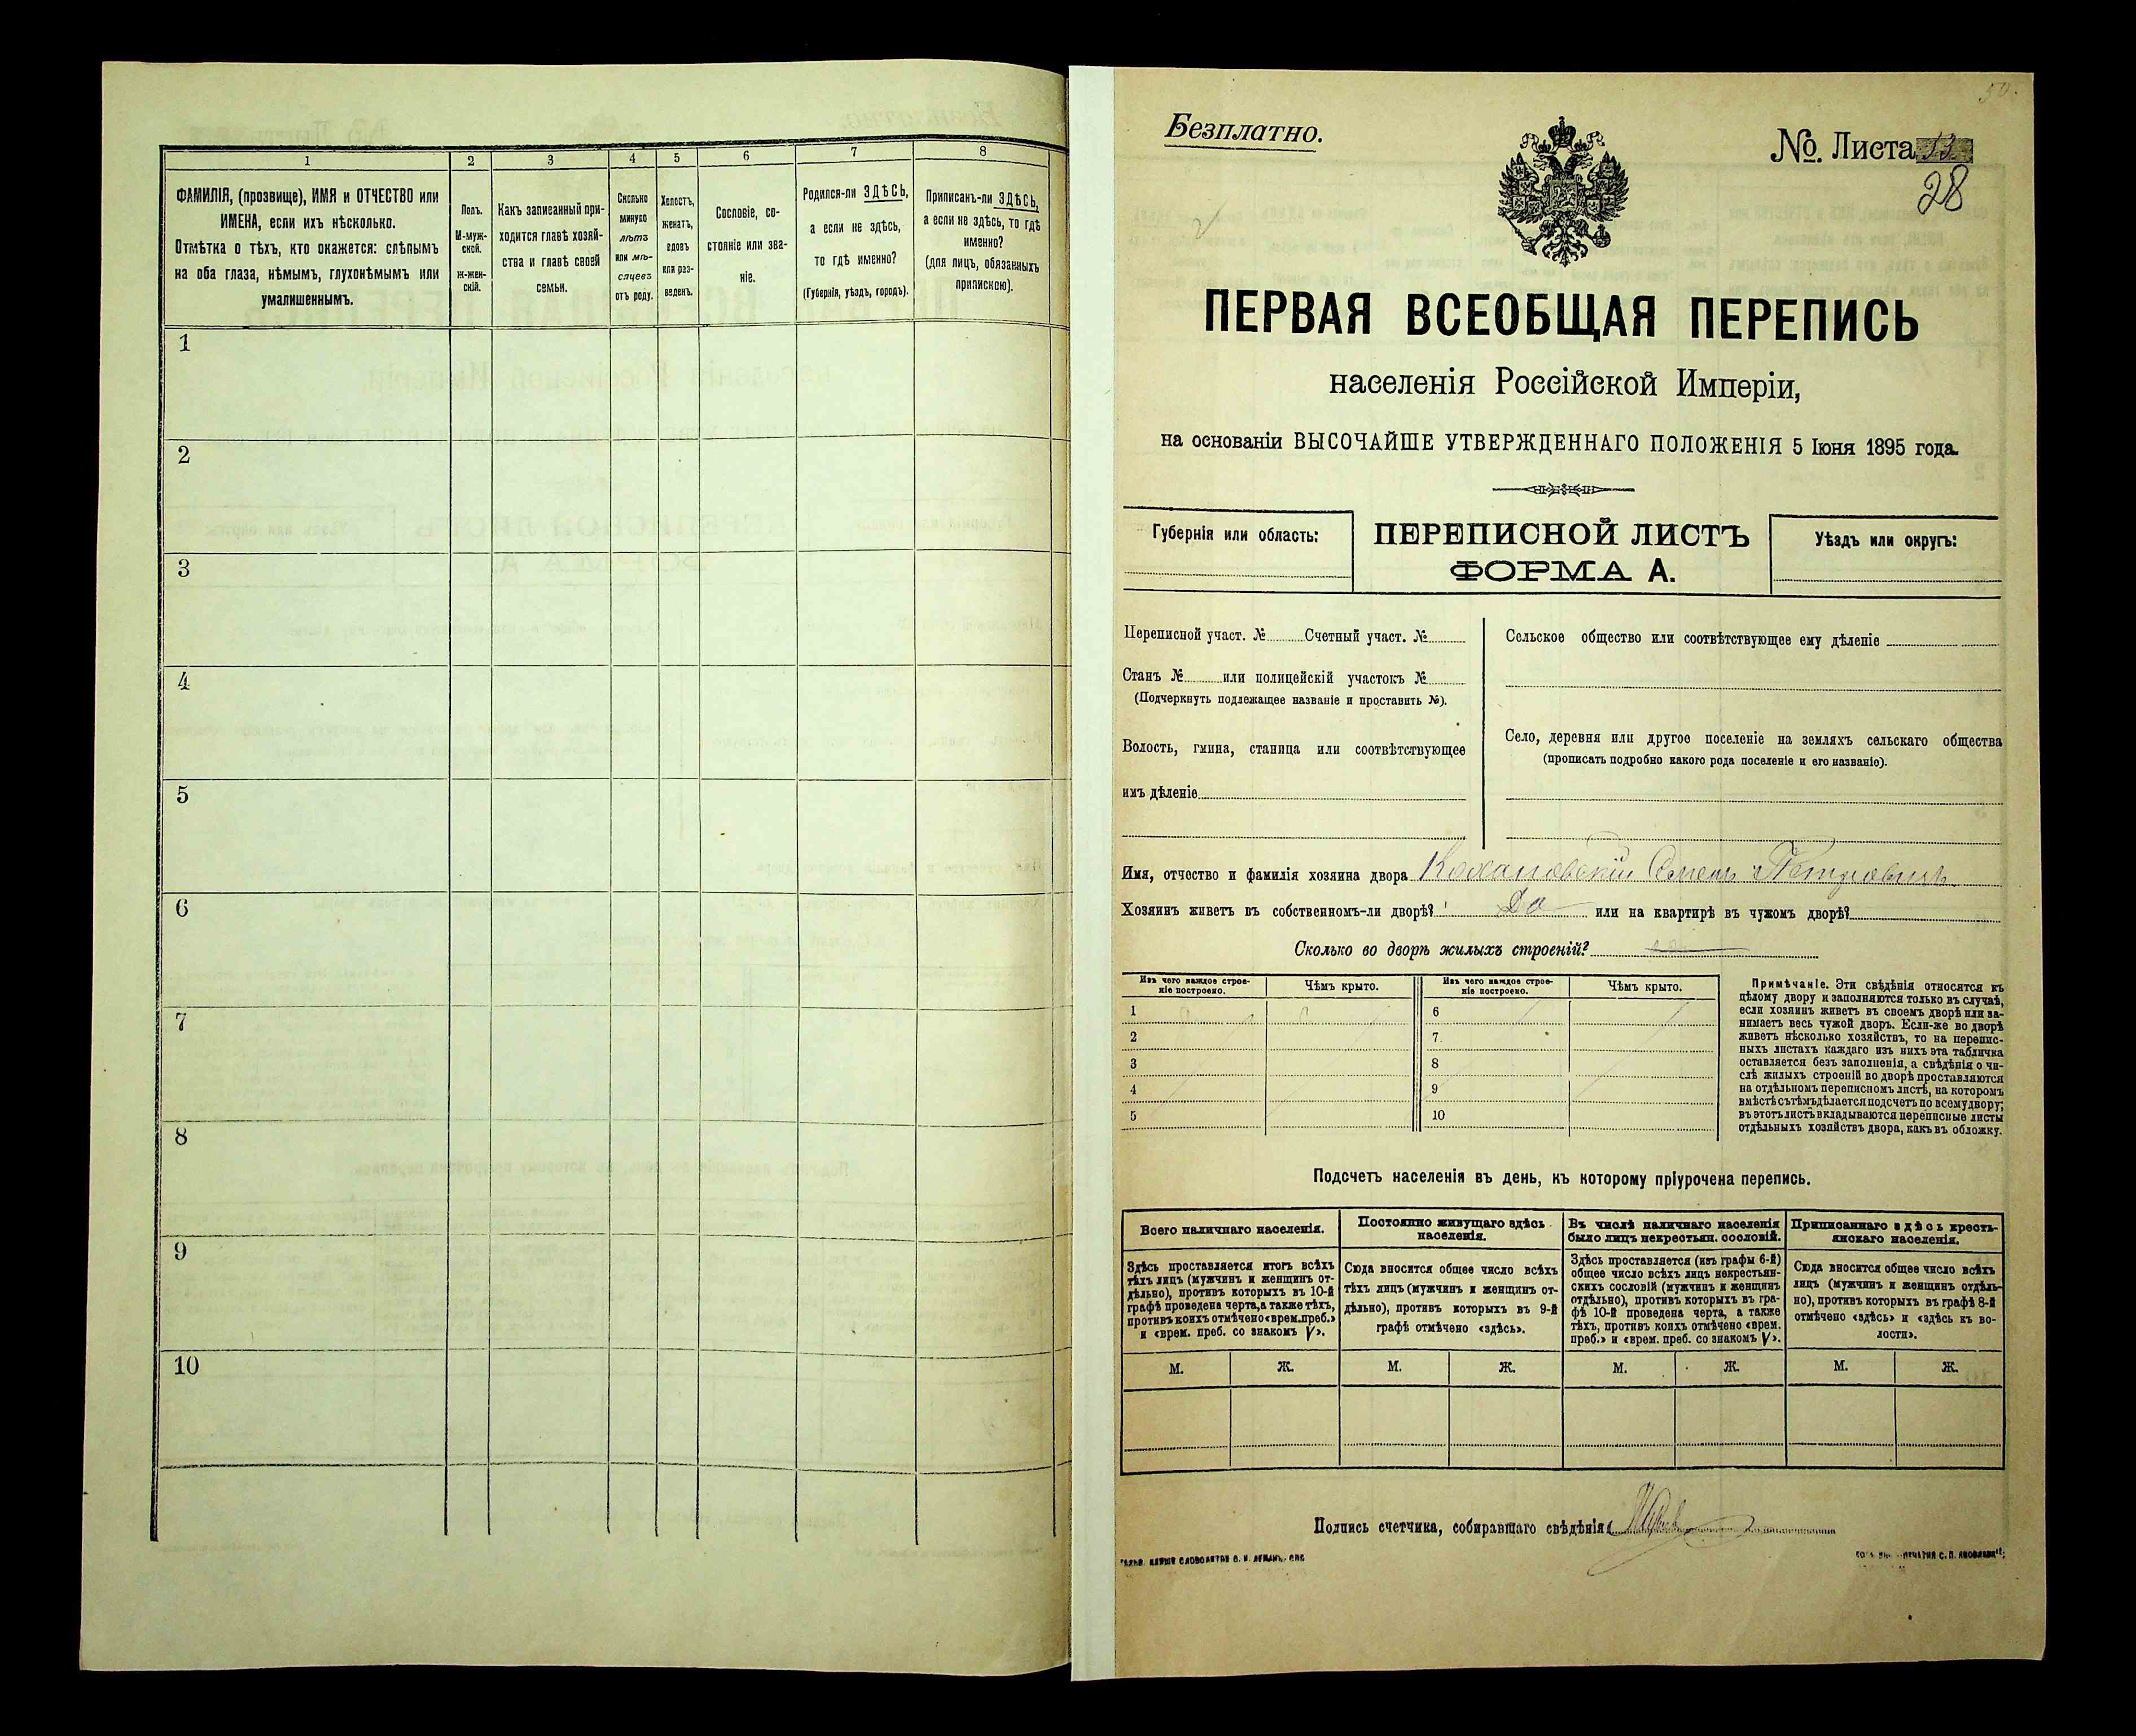 1 2 3 4 5 6 7 8
ФАМИЛІЯ, (прозвище), ИМЯ и ОТЧЕСТВО или
ИМЕНА, если ихъ нѣсколько.
Отмѣтка о тѣхъ, кто окажется: слѣпымъ
на оба глаза, нѣмымъ, глухонѣмымъ или
умалишеннымъ.
Полъ.
М-муж-
ской.
Ж-жен-
скій.
Какъ записанный при-
ходится главѣ хозяй-
ства и главѣ своей
семьи.
Сколько
минуло
лѣтъ
или мѣ-
сяцевъ
отъ роду.
Холостъ,
женатъ,
вдовъ
или раз-
веденъ.
Сословіе, со-
стояніе или зва-
ніе.
Родился-ли ЗДѢСЬ,
а если не здѣсь,
то гдѣ именно?
(Губернія, уѣздъ, городъ).
Приписанъ-ли ЗДѢСЬ,
а если не здѣсь, то гдѣ
именно?
(для лицъ, обязанныхъ
припискою).
1
2
3
4
5
6
7
8
9
10
Безплатно.
№. Листа
28
ПЕРВАЯ ВСЕОБЩАЯ ПЕРЕПИСЬ
населенія Россійской Имперіи,
на основаніи ВЫСОЧАЙШЕ УТВЕРЖДЕННАГО ПОЛОЖЕНІЯ 5 Іюня 1895 года.
Губернія или область:
ПЕРЕПИСНОЙ ЛИСТЪ
ФОРМА А.
Уѣздъ или округъ:
Переписной участ. № Счетный участ. №
Станъ № или полицейскій участокъ №
(Подчеркнуть подлежащее названіе и проставить №).
Волость, гмина, станица или соотвѣтствующее
имъ дѣленіе
Сельское общество или соотвѣтствующее ему дѣленіе
Село, деревня или другое поселеніе на земляхъ сельскаго общества
(прописать подробно какого рода поселеніе и его названіе).
Имя, отчество и фамилія хозяина двора Кохановскій Семенъ Петровичъ
Хозяинъ живетъ въ собственномъ-ли дворѣ? Да или на квартирѣ въ чужомъ дворѣ?
Сколько во дворѣ жилыхъ строеній?
Изъ чего каждое строе-
ніе построено.
Чѣмъ крыто.
Изъ чего каждое строе-
ніе построено.
Чѣмъ крыто.
1 6
2 7
3 8
4 9
5 10
Примѣчаніе. Эти свѣдѣнія относятся къ
цѣлому двору и заполняются только въ случаѣ,
если хозяинъ живетъ въ своемъ дворѣ или за-
нимаетъ весь чужой дворъ. Если-же во дворѣ
живетъ нѣсколько хозяйствъ, то на перепис-
ныхъ листахъ каждаго изъ нихъ эта табличка
оставляется безъ заполненія, а свѣдѣнія о чи-
слѣ жилыхъ строеній во дворѣ проставляются
на отдѣльномъ переписномъ листѣ, на которомъ
вмѣстѣ съ тѣмъ дѣлается подсчетъ по всему двору;
въ этотъ листъ вкладываются переписные листы
отдѣльныхъ хозяйствъ двора, какъ въ обложку.
Подсчетъ населенія въ день, къ которому пріурочена перепись.
Всего наличнаго населенія.
Постоянно живущаго здѣсь
населенія.
Въ числѣ наличнаго населенія
было лицъ некрестьян. сословій.
Приписаннаго здѣсь кресть-
янскаго населенія.
Здѣсь проставляется итогъ всѣхъ
тѣхъ лицъ (мужчинъ и женщинъ от-
дѣльно), противъ которыхъ въ 10-й
графѣ проведена черта, а также тѣхъ,
противъ коихъ отмѣчено «врем.преб.»
и «врем. преб. со знакомъ V».
Сюда вносится общее число всѣхъ
тѣхъ лицъ (мужчинъ и женщинъ от-
дѣльно), противъ которыхъ въ 9-й
графѣ отмѣчено «здѣсь».
Здѣсь проставляется (изъ графы 6-й)
общее число всѣхъ лицъ некрестьян-
скихъ сословій (мужчинъ и женщинъ
отдѣльно), противъ которыхъ въ гра-
фѣ 10-й проведена черта, а также
тѣхъ, противъ коихъ отмѣчено «врем.
преб.» и «врем. преб. со знакомъ V».
Сюда вносится общее число всѣхъ
лицъ (мужчинъ и женщинъ отдѣль-
но), противъ которыхъ въ графѣ 8-й
отмѣчено «здѣсь» и «здѣсь къ во-
лости».
М. Ж. М. Ж. М. Ж. М. Ж.
Подпись счетчика, собиравшаго свѣдѣнія